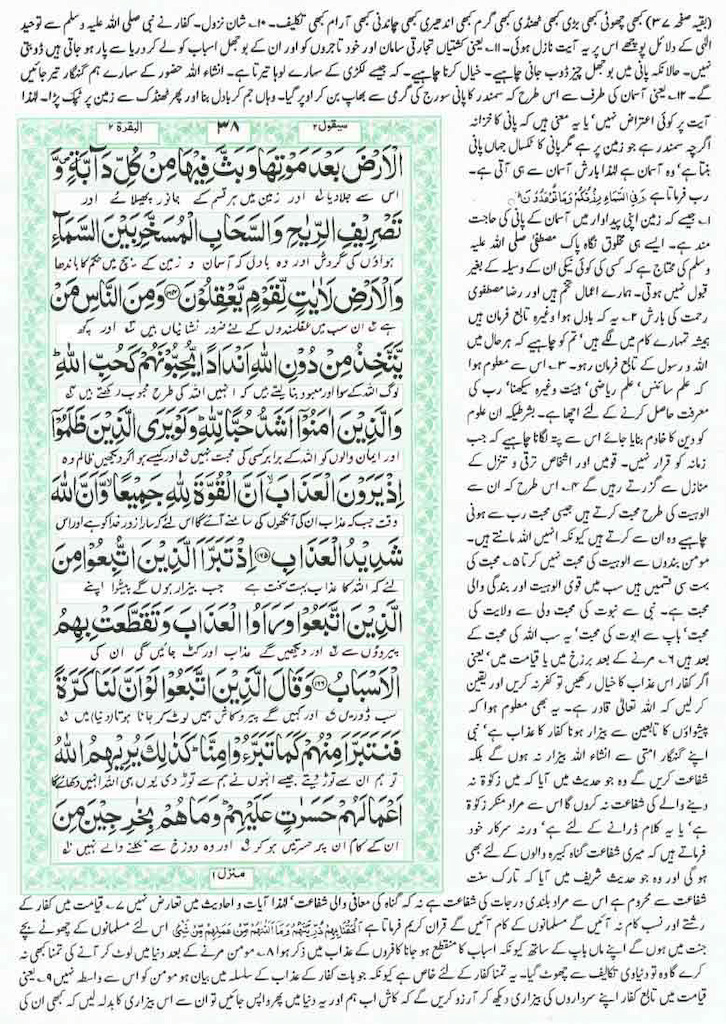 (بقیہ صفحہ ۳۷) کبھی چھوٹی کبھی بڑی کبھی ٹھنڈی کبھی گرم کبھی اندھیری کبھی چاندنی کبھی آرام کبھی تکلیف۔ ۱۰۔ شان نزول۔ کفار نے نبی صلی اللہ علیہ وسلم سے توحید
الٰہی کے دلائل پوچھے اس پر یہ آیت نازل ہوئی۔ ۱۱۔ یعنی کشتیاں تجارتی سامان اور خود تاجروں کو اور ان کے بوجھل اسباب کو لے کر دریا سے پار ہو جاتی ہیں ڈوبتی
نہیں۔ حالانکہ پانی میں بوجھل چیز ڈوب جانی چاہیے۔ خیال کرنا چاہیے۔ کہ جیسے لکڑی کے سہارے لوہا تیرتا ہے۔ انشاء اللہ حضور کے سہارے ہم گنہگار تیر جائیں
گے۔ ۱۲۔ یعنی آسمان کی طرف سے اس طرح کہ سمندر کا پانی سورج کی گرمی سے بھاپ بن کر اوپر گیا۔ وہاں جم کر بادل بنا اور پھر ٹھنڈک سے زمین پر ٹپک پڑا۔ لہٰذا
البقرة ۲
۳۸
سیقول ۲
الْاَرْضَ بَعْدَ مَوْتِهَا وَبَثَّ فِيْهَا مِنْ كُلِّ دَآبَّةٍ وَّ
اس سے جلا دیا اور زمین میں ہر قسم کے جانور پھیلائے اور
تَصْرِيْفِ الرِّيٰحِ وَالسَّحَابِ الْمُسَخَّرِ بَيْنَ السَّمَآءِ
ہواؤں کی گردش اور وہ بادل کہ آسمان و زمین کے بیچ میں حکم کا باندھا
وَالْاَرْضِ لَاٰيٰتٍ لِّقَوْمٍ يَّعْقِلُوْنَ ۝۱۶۴ وَمِنَ النَّاسِ مَنْ
ہے ان سب میں عقلمندوں کے لئے ضرور نشانیاں ہیں اور کچھ
يَّتَّخِذُ مِنْ دُوْنِ اللّٰهِ اَنْدَادًا يُّحِبُّوْنَهُمْ كَحُبِّ اللّٰهِ
لوگ اللہ کے سوا اور معبود بنا لیتے ہیں کہ انہیں اللہ کی طرح محبوب رکھتے ہیں
وَالَّذِيْنَ اٰمَنُوْٓا اَشَدُّ حُبًّا لِّلّٰهِ وَلَوْ يَرَى الَّذِيْنَ ظَلَمُوْٓا
اور ایمان والوں کو اللہ کے برابر کسی کی محبت نہیں اور کیسے ہو اگر دیکھیں ظالم وہ
اِذْ يَرَوْنَ الْعَذَابَ اَنَّ الْقُوَّةَ لِلّٰهِ جَمِيْعًا وَّاَنَّ اللّٰهَ
وقت جب کہ عذاب ان کی آنکھوں کے سامنے آئے گا اس لئے کہ سارا زور خدا کو ہے اور اس
شَدِيْدُ الْعَذَابِ ۝۱۶۵ اِذْ تَبَرَّاَ الَّذِيْنَ اتُّبِعُوْا مِنَ
لئے کہ اللہ کا عذاب بہت سخت ہے جب بیزار ہوں گے پیشوا اپنے
الَّذِيْنَ اتَّبَعُوْا وَرَاَوُا الْعَذَابَ وَتَقَطَّعَتْ بِهِمُ
پیروؤں سے اور دیکھیں گے عذاب اور کٹ جائیں گی ان کی
الْاَسْبَابُ ۝۱۶۶ وَقَالَ الَّذِيْنَ اتَّبَعُوْا لَوْ اَنَّ لَنَا كَرَّةً
سب ڈوریں اور کہیں گے پیرو کاش ہمیں لوٹ کر جانا ہوتا (دنیا) میں
فَنَتَبَرَّاَ مِنْهُمْ كَمَا تَبَرَّءُوْا مِنَّا كَذٰلِكَ يُرِيْهِمُ اللّٰهُ
تو ہم ان سے توڑ دیتے جیسے انہوں نے ہم سے توڑ دی یوں ہی اللہ انہیں دکھائے گا
اَعْمَالَهُمْ حَسَرٰتٍ عَلَيْهِمْ وَمَا هُمْ بِخٰرِجِيْنَ مِنَ
ان کے کام ان پر حسرتیں ہو کر اور وہ دوزخ سے نکلنے والے نہیں
منزل ۱
آیت پر کوئی اعتراض نہیں یا یہ معنی ہیں کہ پانی کا خزانہ
اگرچہ سمندر ہے جو زمین پر ہے مگر پانی کا ٹکسال جہاں پانی
بنتا ہے وہ آسمان ہے لہٰذا بارش آسمان سے ہی آتی ہے۔
رب فرماتا ہے وَفِي السَّمَآءِ رِزْقُكُمْ وَمَا تُوْعَدُوْنَ
۱۔ جیسے کہ زمین اپنی پیداوار میں آسمان کے پانی کی حاجت
مند ہے۔ ایسے ہی مخلوق نگاہ پاک مصطفیٰ صلی اللہ علیہ
وسلم کی محتاج ہے کہ کسی کی کوئی نیکی ان کے وسیلہ کے بغیر
قبول نہیں ہوتی۔ ہمارے اعمال تخم ہیں اور رضا مصطفوی
رحمت کی بارش ۲۔ یہ کہ بادل ہوا وغیرہ تابع فرمان ہیں
ہمیشہ تمہارے کام میں لگے ہیں تم کو چاہیے کہ ہر حال میں
اللہ و رسول کے تابع فرمان رہو۔ ۳۔ اس سے معلوم ہوا
کہ علم سائنس علم ریاضی ہیئت وغیرہ سیکھنا رب کی
معرفت حاصل کرنے کے لئے اچھا ہے۔ بشرطیکہ ان علوم
کو دین کا خادم بنایا جائے اس سے پتہ لگانا چاہیے کہ جب
زمانہ کو قرار نہیں۔ قومیں اور اشخاص ترقی و تنزل کے
منازل سے گزرتے رہیں گے ۴۔ اس طرح کہ ان سے
الوہیت کی طرح محبت کرتے ہیں جیسی محبت رب سے ہونی
چاہیے وہ ان سے کرتے ہیں کیونکہ انہیں اللہ مانتے ہیں۔
مومن بندوں سے الوہیت کی محبت نہیں کرتا ۵۔ محبت کی
بہت سی قسمیں ہیں سب میں قوی الوہیت اور بندگی والی
محبت ہے۔ نبی سے نبوت کی محبت ولی سے ولایت کی
محبت باپ سے ابوت کی محبت یہ سب اللہ کی محبت کے
بعد ہیں ۶۔ مرنے کے بعد برزخ میں یا قیامت میں یعنی
اگر کفار اس عذاب کا خیال رکھیں تو کفر نہ کریں اور یقین
کر لیں کہ اللہ تعالیٰ قادر ہے۔ یہ بھی معلوم ہوا کہ
پیشواؤں کا تابعین سے بیزار ہونا کفار کا عذاب ہے نبی
اپنے گنہگار امتی سے انشاء اللہ بیزار نہ ہوں گے بلکہ
شفاعت کریں گے وہ جو حدیث میں آیا کہ میں زکوٰۃ نہ
دینے والے کی شفاعت نہ کروں گا اس سے مراد منکر زکوٰۃ
ہے یا یہ کلام ڈرانے کے لئے ہے ورنہ سرکار خود
فرماتے ہیں کہ میری شفاعت گناہ کبیرہ والوں کے لئے بھی
ہو گی اور وہ جو حدیث شریف میں آیا کہ تارک سنت
شفاعت سے محروم ہے اس سے مراد بلندی درجات کی شفاعت ہے نہ کہ گناہ کی معافی والی شفاعت لہٰذا آیات و احادیث میں تعارض نہیں ۷۔ قیامت میں کفار کے
رشتے اور نسب کام نہ آئیں گے مسلمانوں کے کام آئیں گے قرآن کریم فرماتا ہے اَلْحَقْنَا بِهِمْ ذُرِّيَّتَهُمْ وَمَآ اَلَتْنٰهُمْ مِّنْ عَمَلِهِمْ مِّنْ شَيْءٍ اس لئے مسلمانوں کے چھوٹے بچے
جنت میں ہوں گے اپنے ماں باپ کے ساتھ کیونکہ اسباب کا منقطع ہو جانا کافروں کے عذاب میں ذکر ہوا ۸۔ مومن مرنے کے بعد دنیا میں لوٹ کر آنے کی تمنا بھی نہ
کرے گا وہ تو دنیاوی تکالیف سے چھوٹ گیا۔ یہ تمنا کفار کے لئے خاص ہے کیونکہ جو بات کفار کے عذاب کے سلسلہ میں بیان ہو مومن کو اس سے واسطہ نہیں ۹۔ یعنی
قیامت میں تابع کفار اپنے سرداروں کی بیزاری دیکھ کر آرزو کریں گے کہ کاش اب ہم اور یہ دنیا میں پھر واپس جائیں تو ان سے اس بیزاری کا بدلہ لیں کہ کبھی ان کی